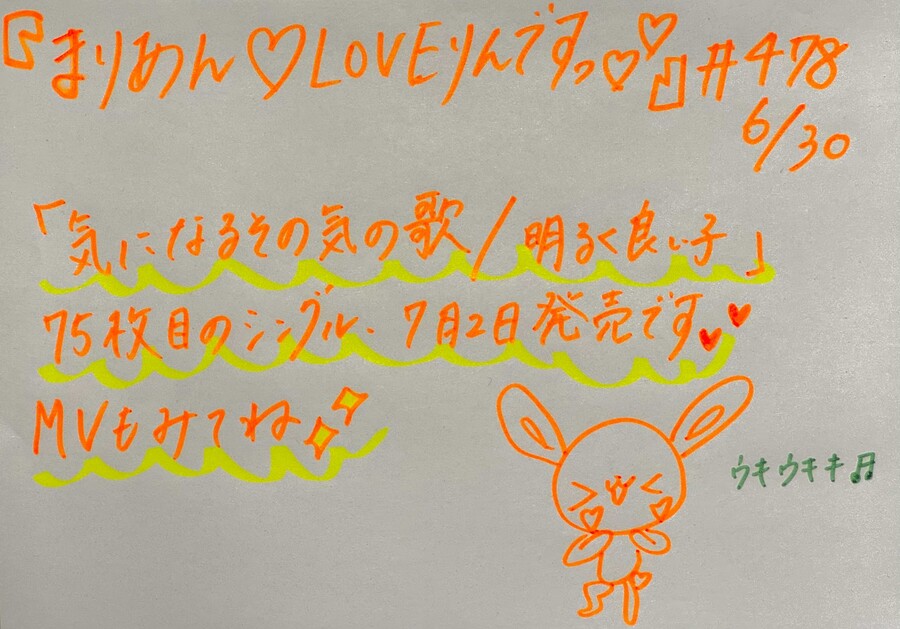 『まりあん♡LOVEりんですっ♡♡』#478
6/30
「気になるその気の歌/明るく良い子」
75枚目のシングル、7月2日発売です♥♥
MVもみてね
ウキウキキ♬